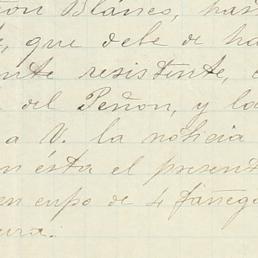 ton Blanes, has
, que debe de ha
ente resistente, e
del Peñon, y lo
a V. la noticia
n ésta el present
en cupo de 4 fanega
ura.